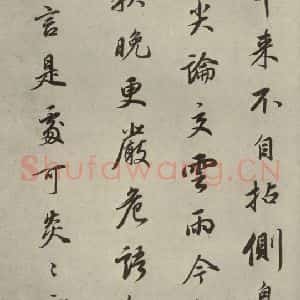 来不自拈側
尖論文雲雨今
晚更嚴危語
言是處可炎〻
Shufawang.CN